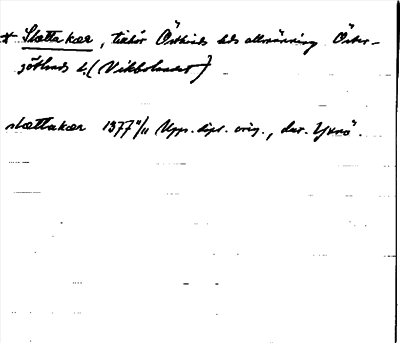 * Slættakær, tillhör Östkinds hds allmänning Öster-
götlands l. (Vikbolandet)
slættakær 1377 4/11 Upps. dipl. orig., dat. Yxnö.